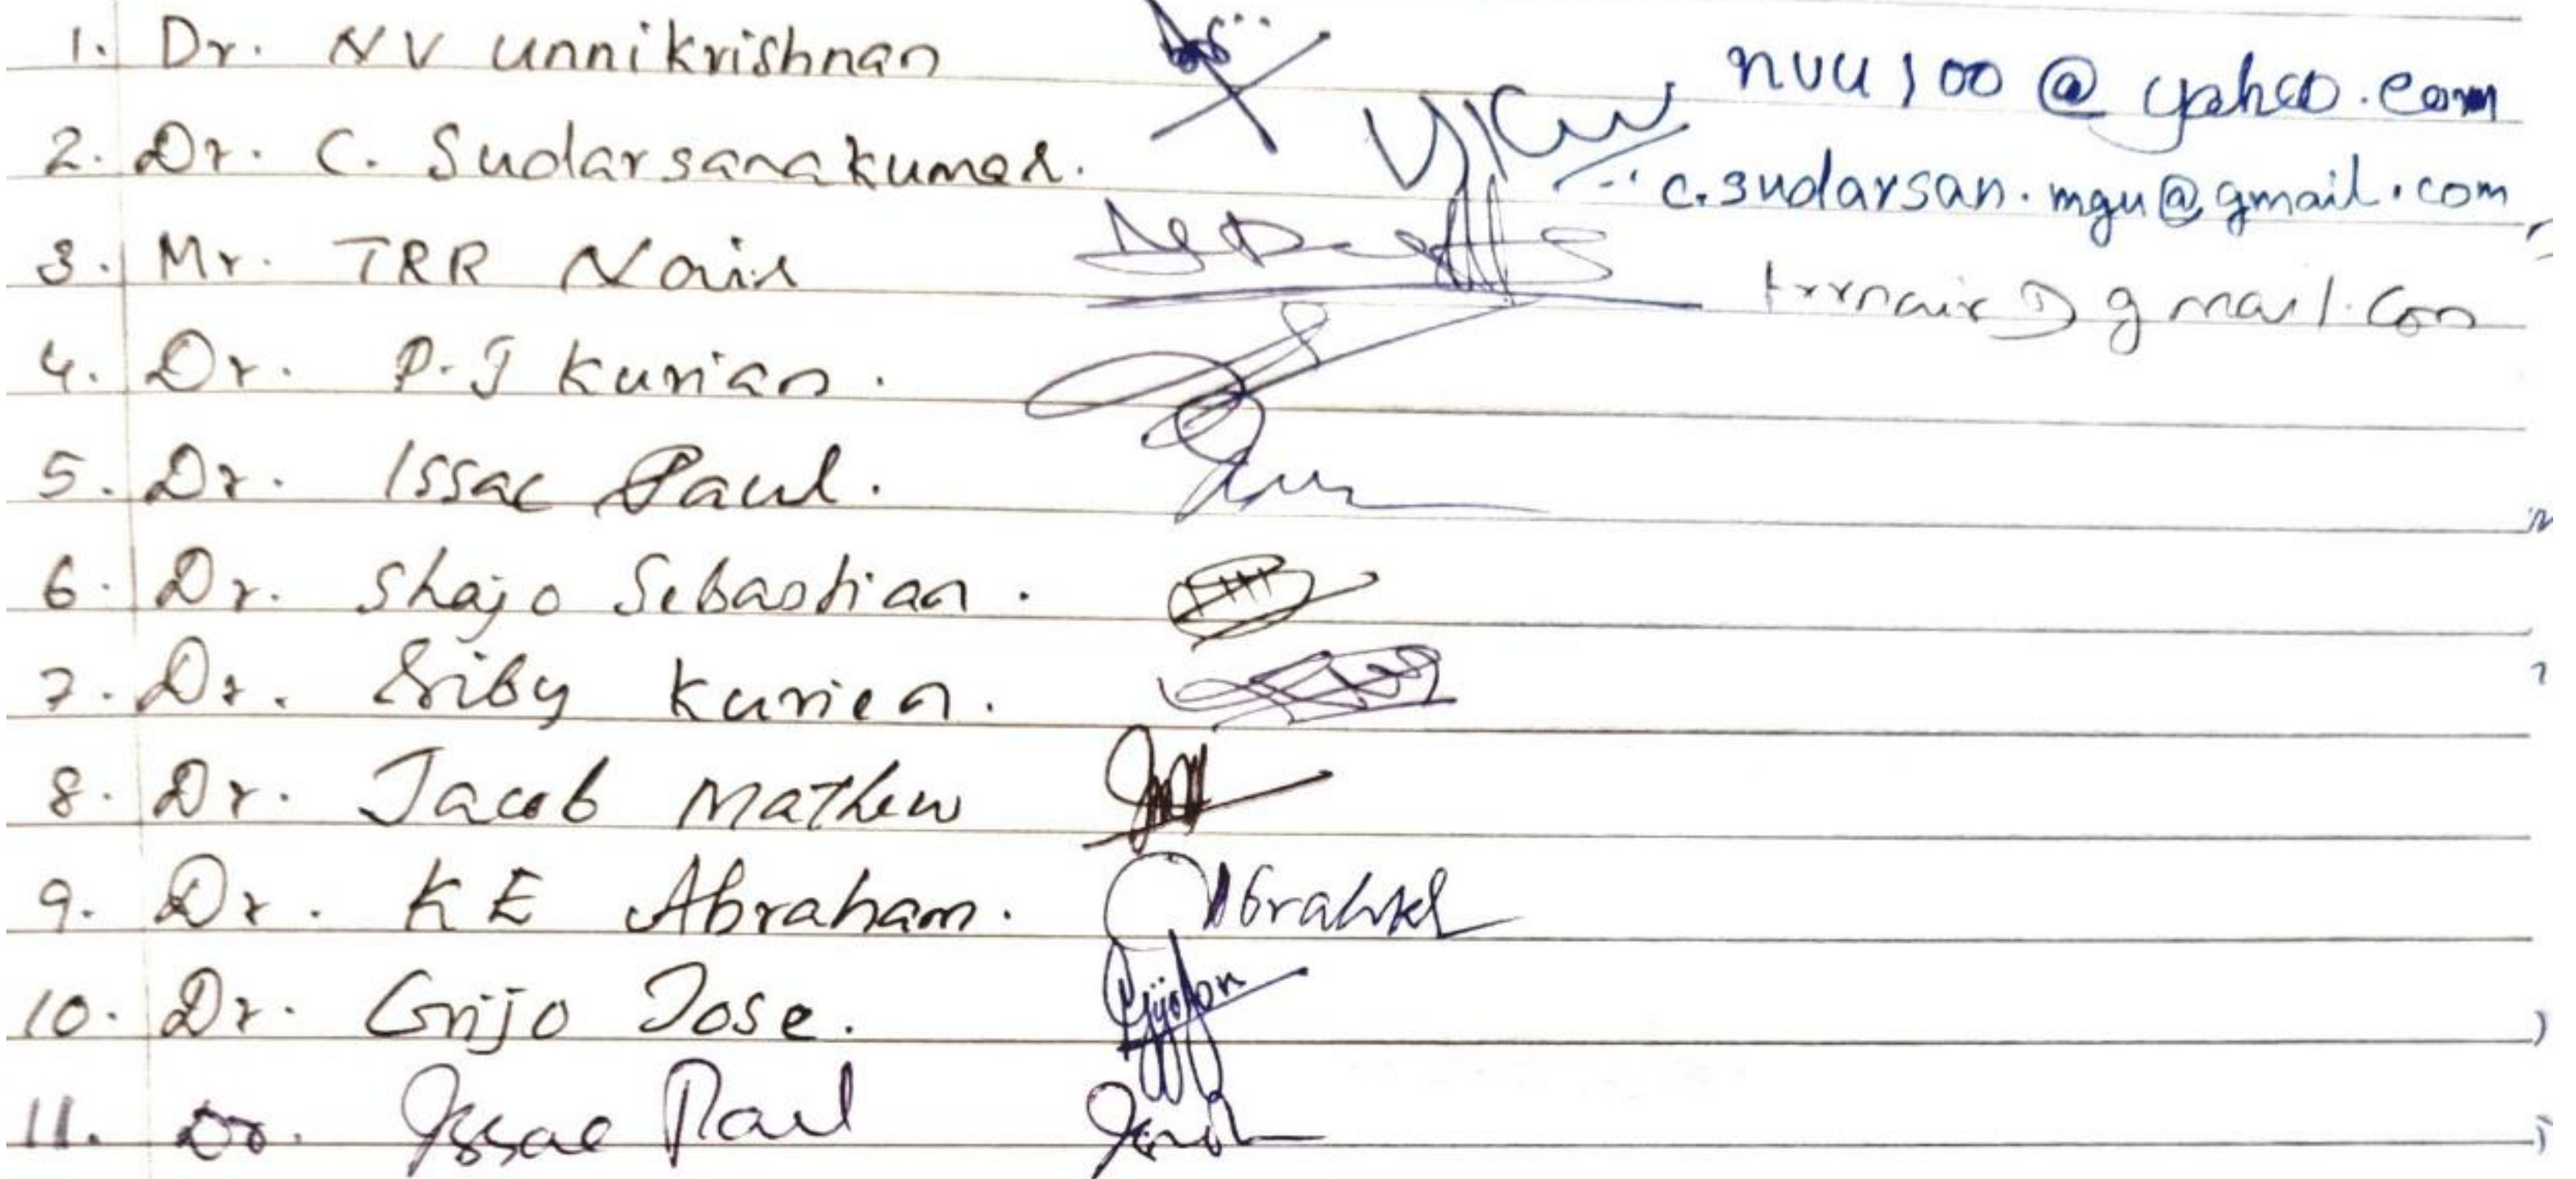 1. Dr. NV Unnikrishnan nvu100@yahoo.com
2. Dr. C. Sudarsanakumar. c.sudarsan.mgu@gmail.com
3. Mr. TRR Nair trrnair@gmail.com
4. Dr. P.J Kurian.
5. Dr. Issac Paul.
6. Dr. Shajo Sebastian.
7. Dr. Siby Kurien.
8. Dr. Jacob Mathew
9. Dr. KE Abraham.
10. Dr. Gijo Jose.
11. Dr. Issac Paul